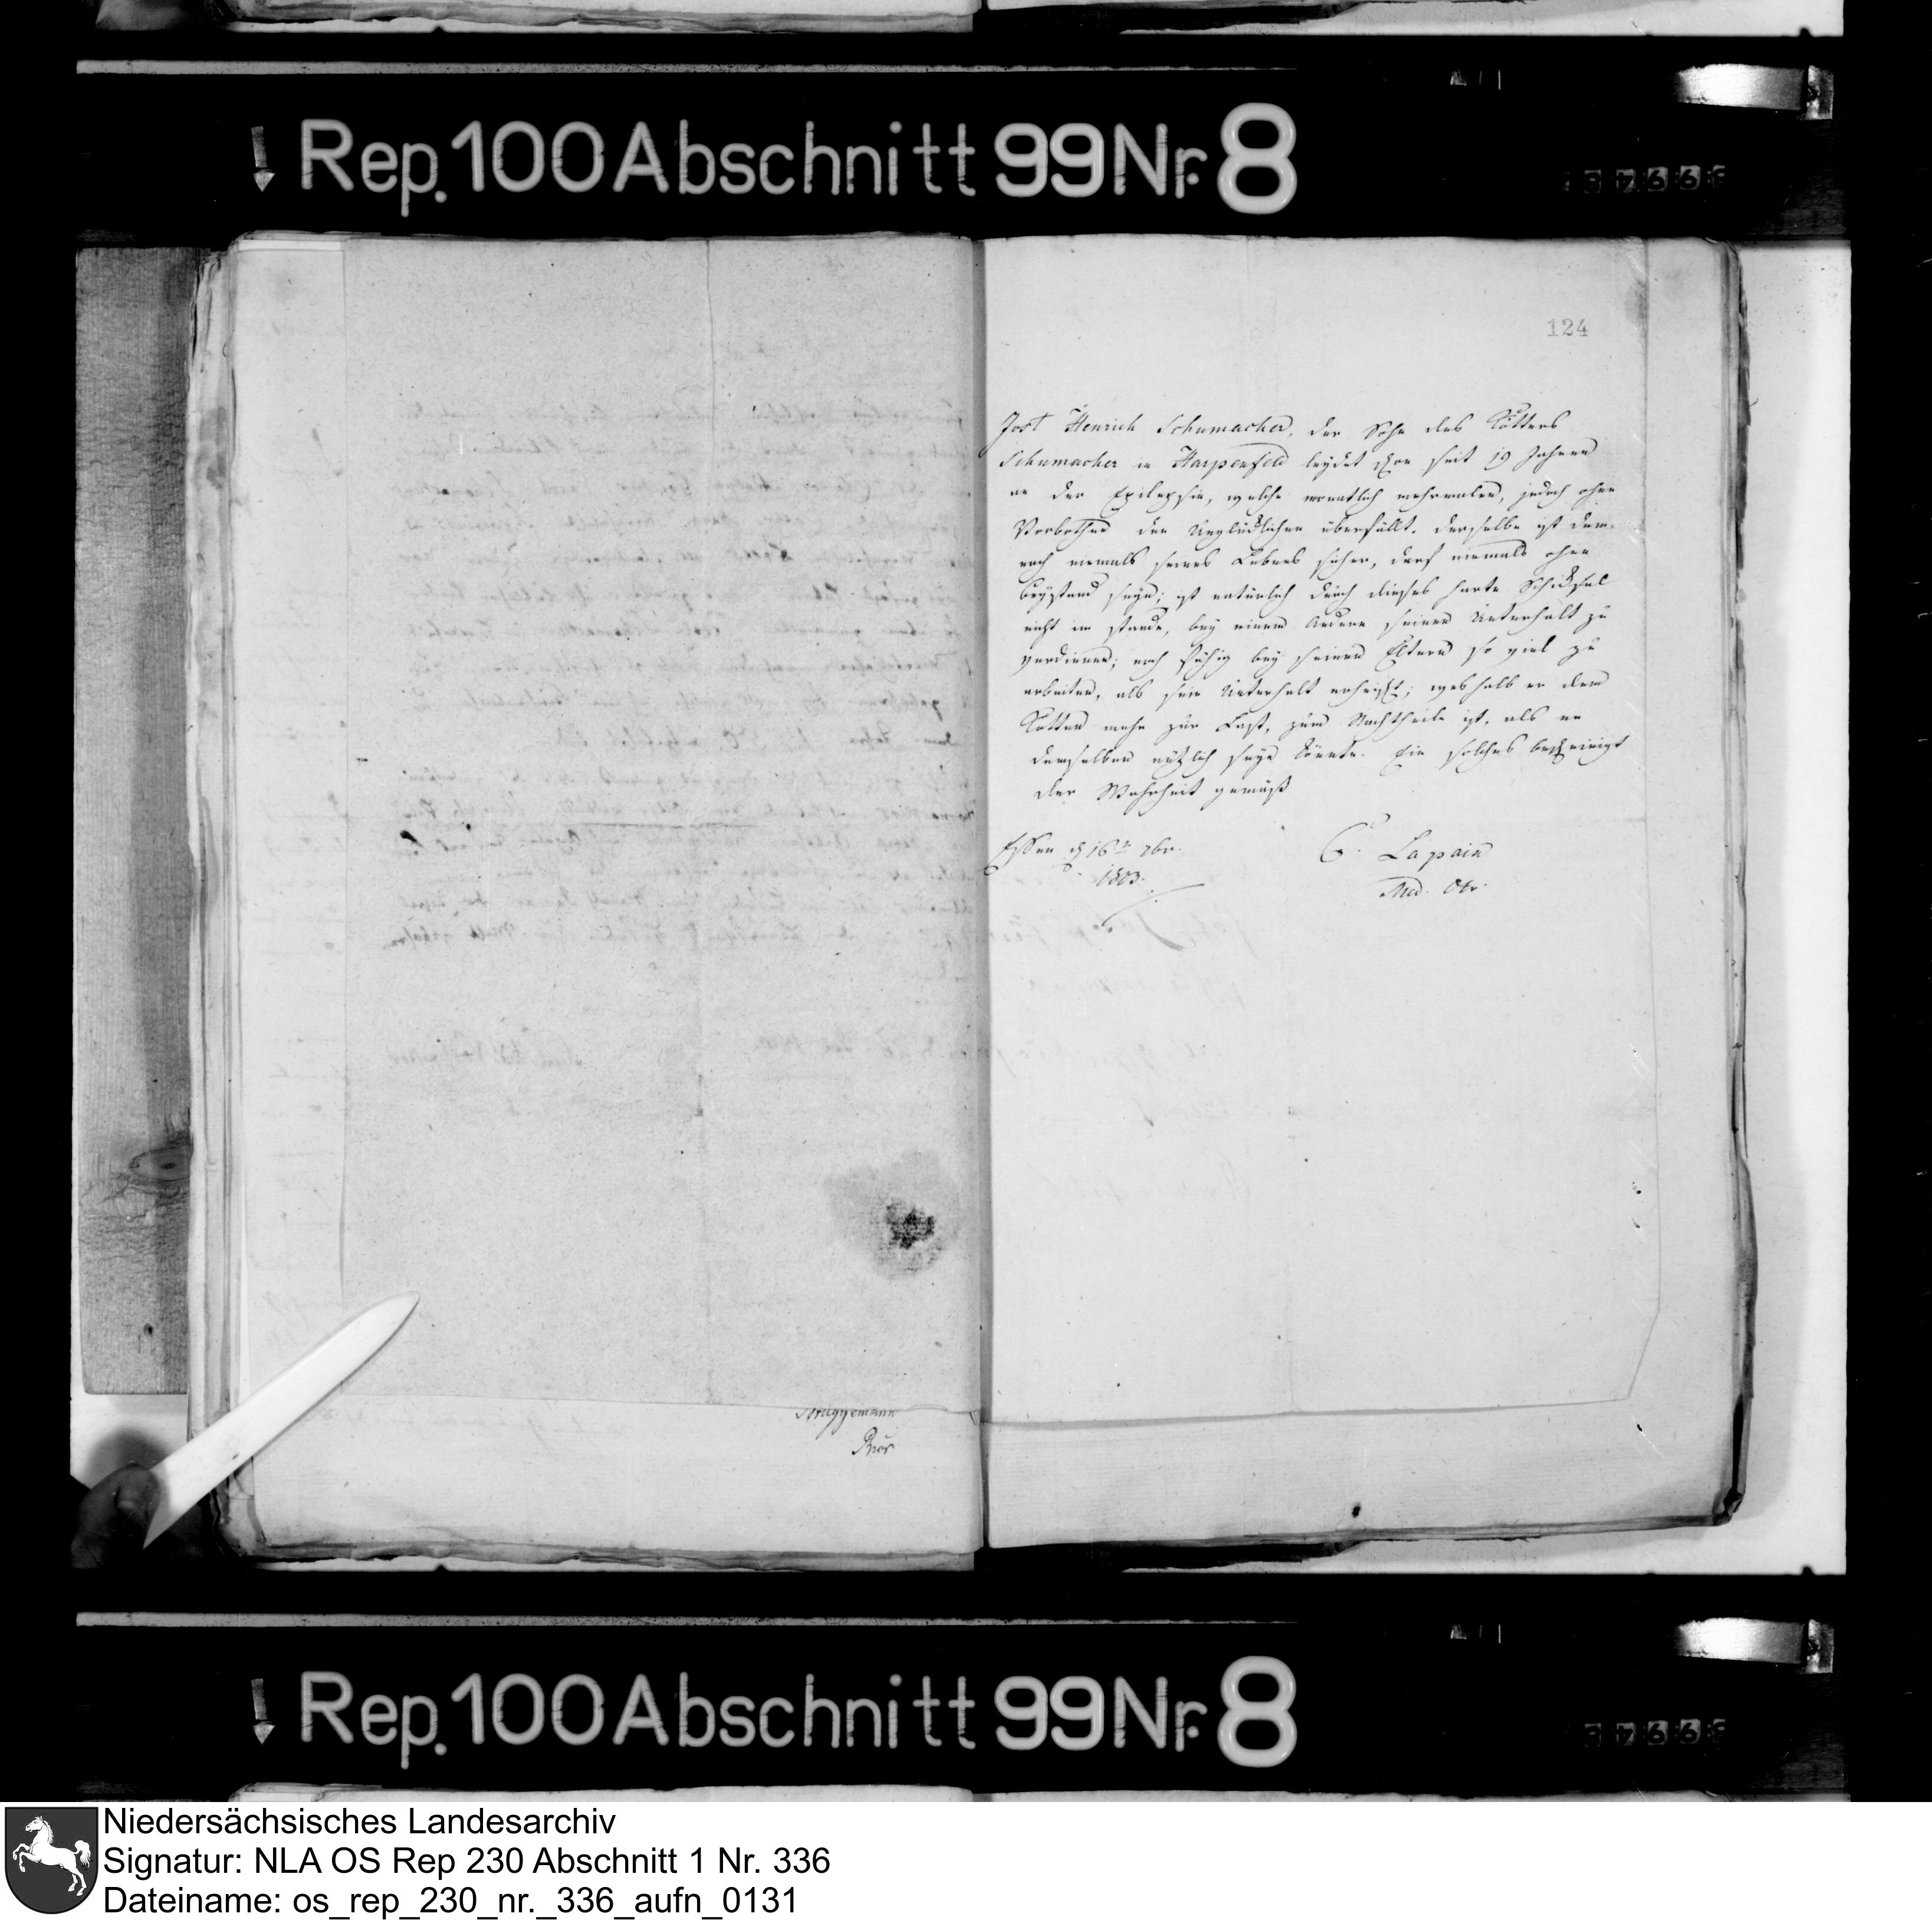 Rep. 100 Abschnitt 99 Nr. 8
124
Jost Henrich Schumacher, der Sohn des Kötters
Schumacher in Harpenfeld leydet schon seit 19 Jahren
an der Epilepsie, welche monatlich mehrmalen, jedoch ohne
Vorbothen den Unglücklichen überfällt. Derselbe ist dem-
nach niemals seines Lebens sicher, darf niemals ohne
beystand seyn; ist natürlich durch dieses harte Schicksal
nicht im stande, bey einem Andern seinen Unterhalt zu
verdienen; noch fähig bey seinen Eltern so viel zu
arbeiten, als sein Unterhalt erheischt; weshalb er dem
Kotten mehr zur Last, zum Nachtheile ist, als er
demselben nützlich seyn könnte. Ein solches bescheinigt
der Wahrheit gemäß
Essen d 16n 7br.
1803.
G. Lapain
Med. Dr.
Bruggemann
Prior
Rep. 100 Abschnitt 99 Nr. 8
Niedersächsisches Landesarchiv
Signatur: NLA OS Rep 230 Abschnitt 1 Nr. 336
Dateiname: os_rep_230_nr._336_aufn_0131